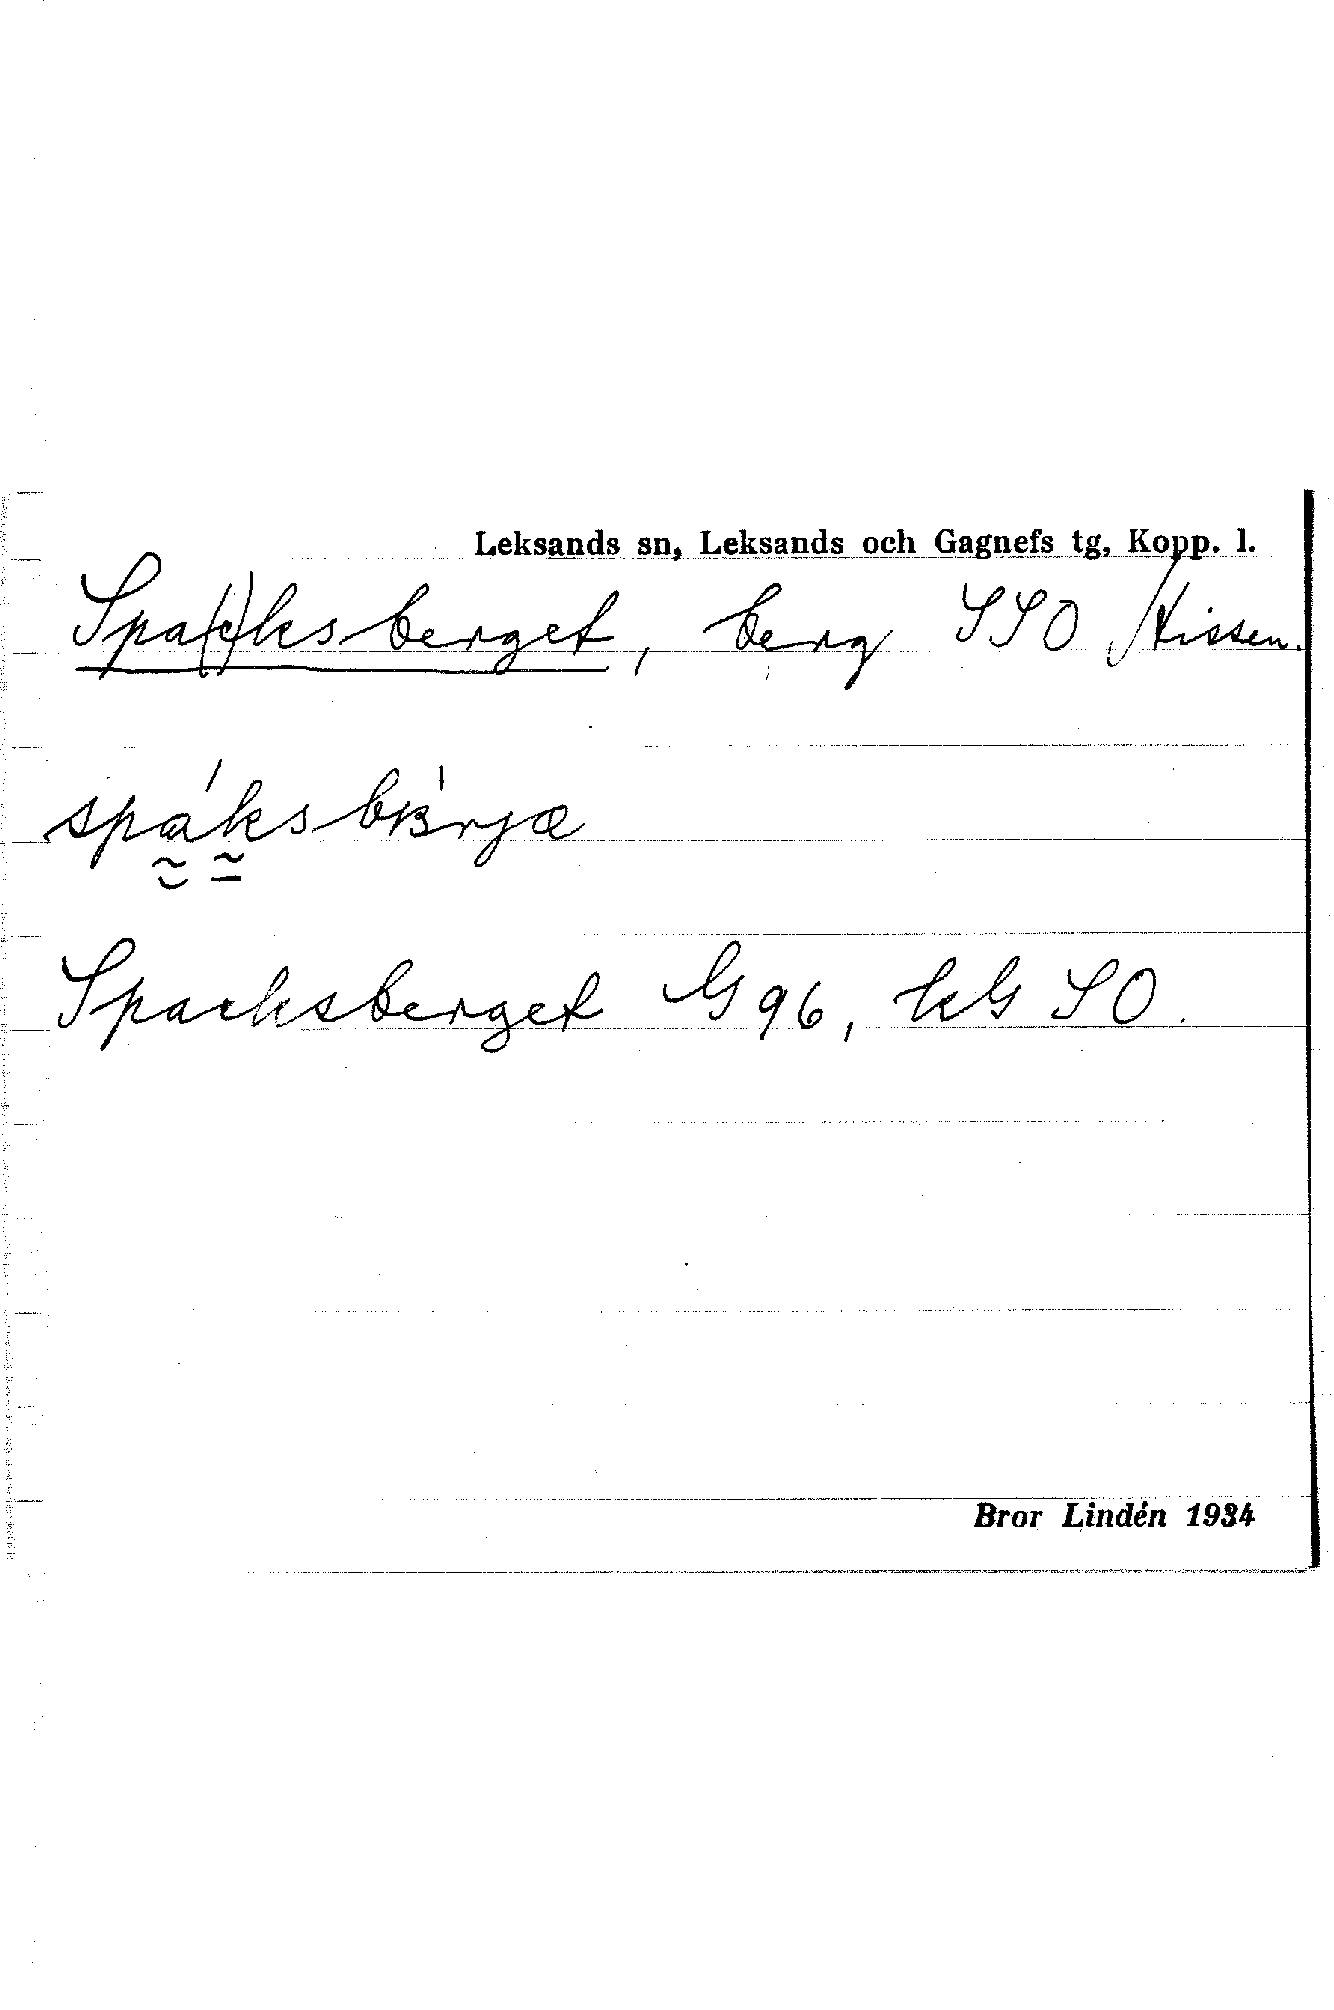 Leksands sn, Leksands och Gagnefs tg, Kopp. l.
Spa(c)ksberget, berg SSO Hissen.
Spacksberget G 96, kG SO.
Bror Lindén 1934